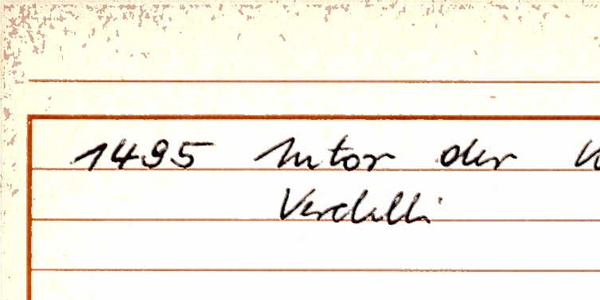 1495 Autor der
Verdelli